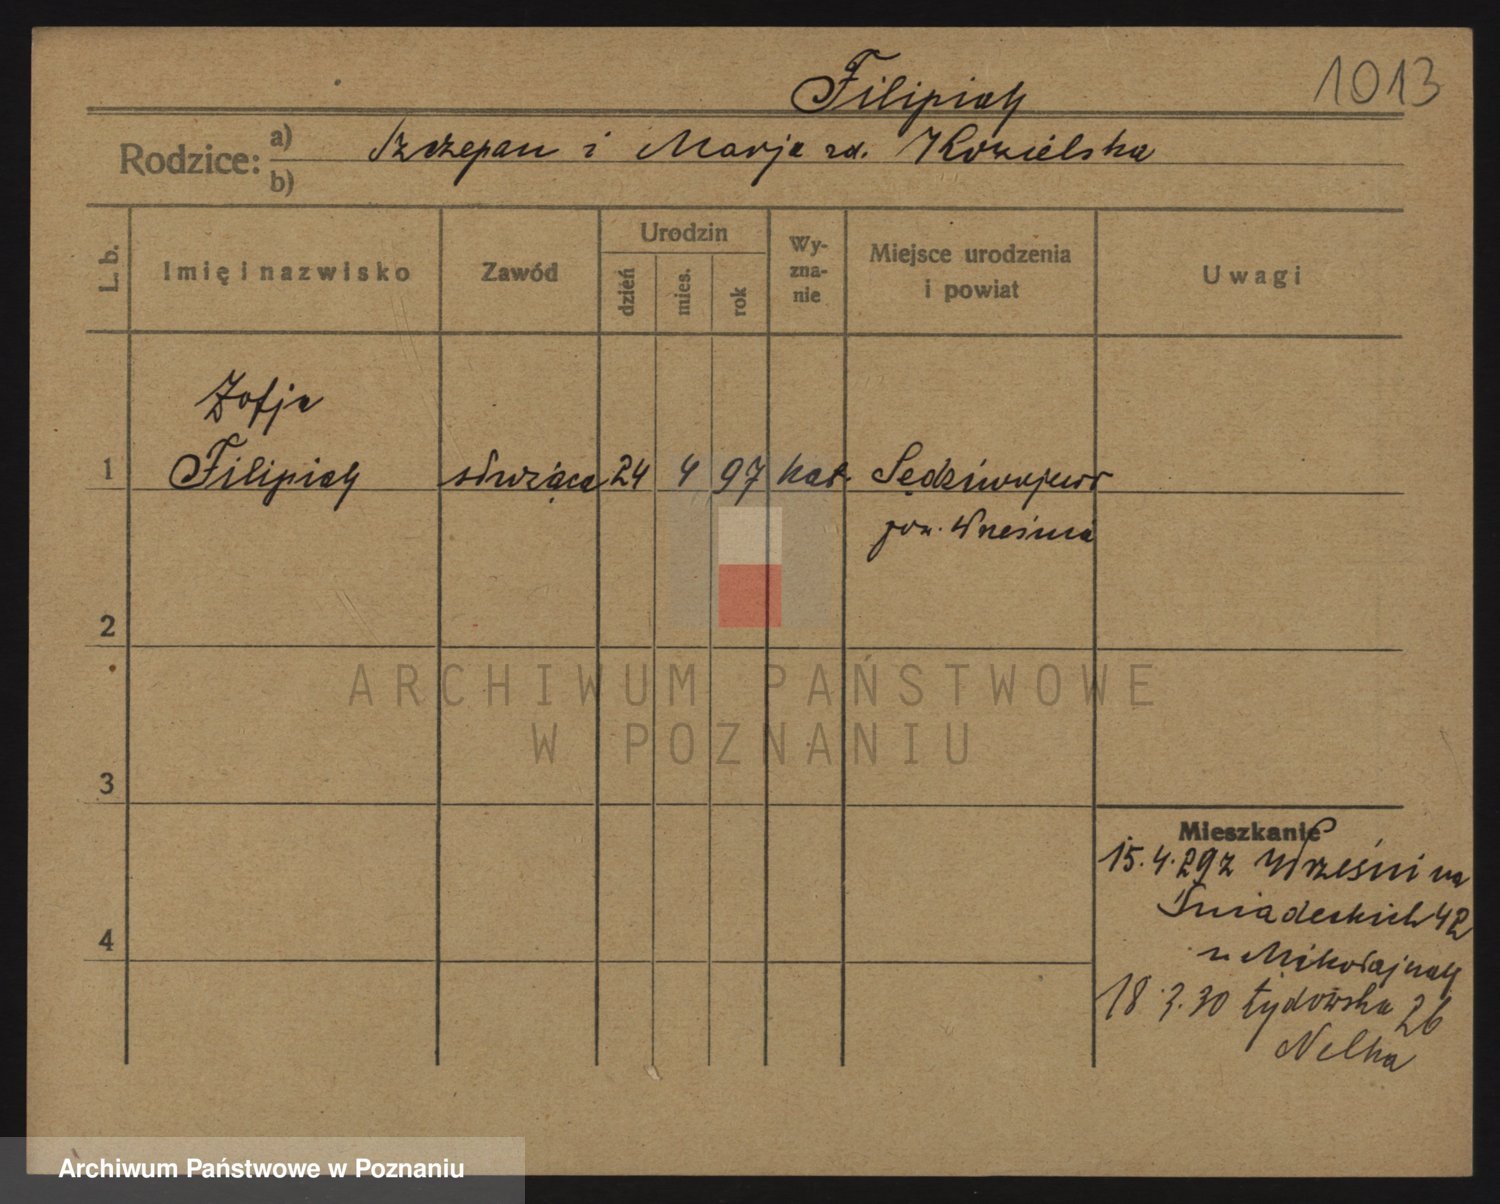 Filipiak
1013
Rodzice: a) Szczepan i Marja zd. Kozielska
b)
L. b.
Imię i nazwisko
Zawód
Urodzin
dzień
mies.
rok
Wy-
zna-
nie
Miejsce urodzenia
i powiat
Uwagi
Zofja
1 Filipiak służąca 24 4 97 kat. Sędziwojewo
pow. Września
2
3
4
Mieszkanie
15.4.29 z Wrześni na
Śniadeckich 42
u Mikołajczak
18.3.30 Żydowska 26
Nelka
ARCHIWUM PAŃSTWOWE
W POZNANIU
Archiwum Państwowe w Poznaniu